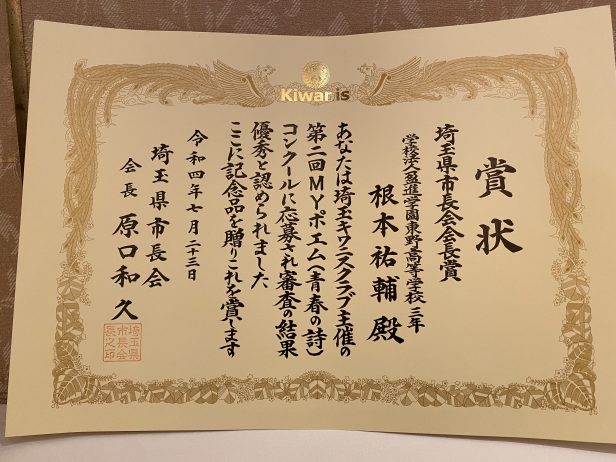 Kiwanis
賞状
埼玉県市長会会長賞
学校法人盈進学園東野高等学校三年
根本祐輔殿
あなたは埼玉キワニスクラブ主催の
第二回MYポエム(青春の詩)
コンクールに応募され審査の結果
優秀と認められました
ここに記念品を贈りこれを賞します
令和四年七月二十三日
埼玉県市長会
会長 原口和久
埼玉県
市長会
長之印